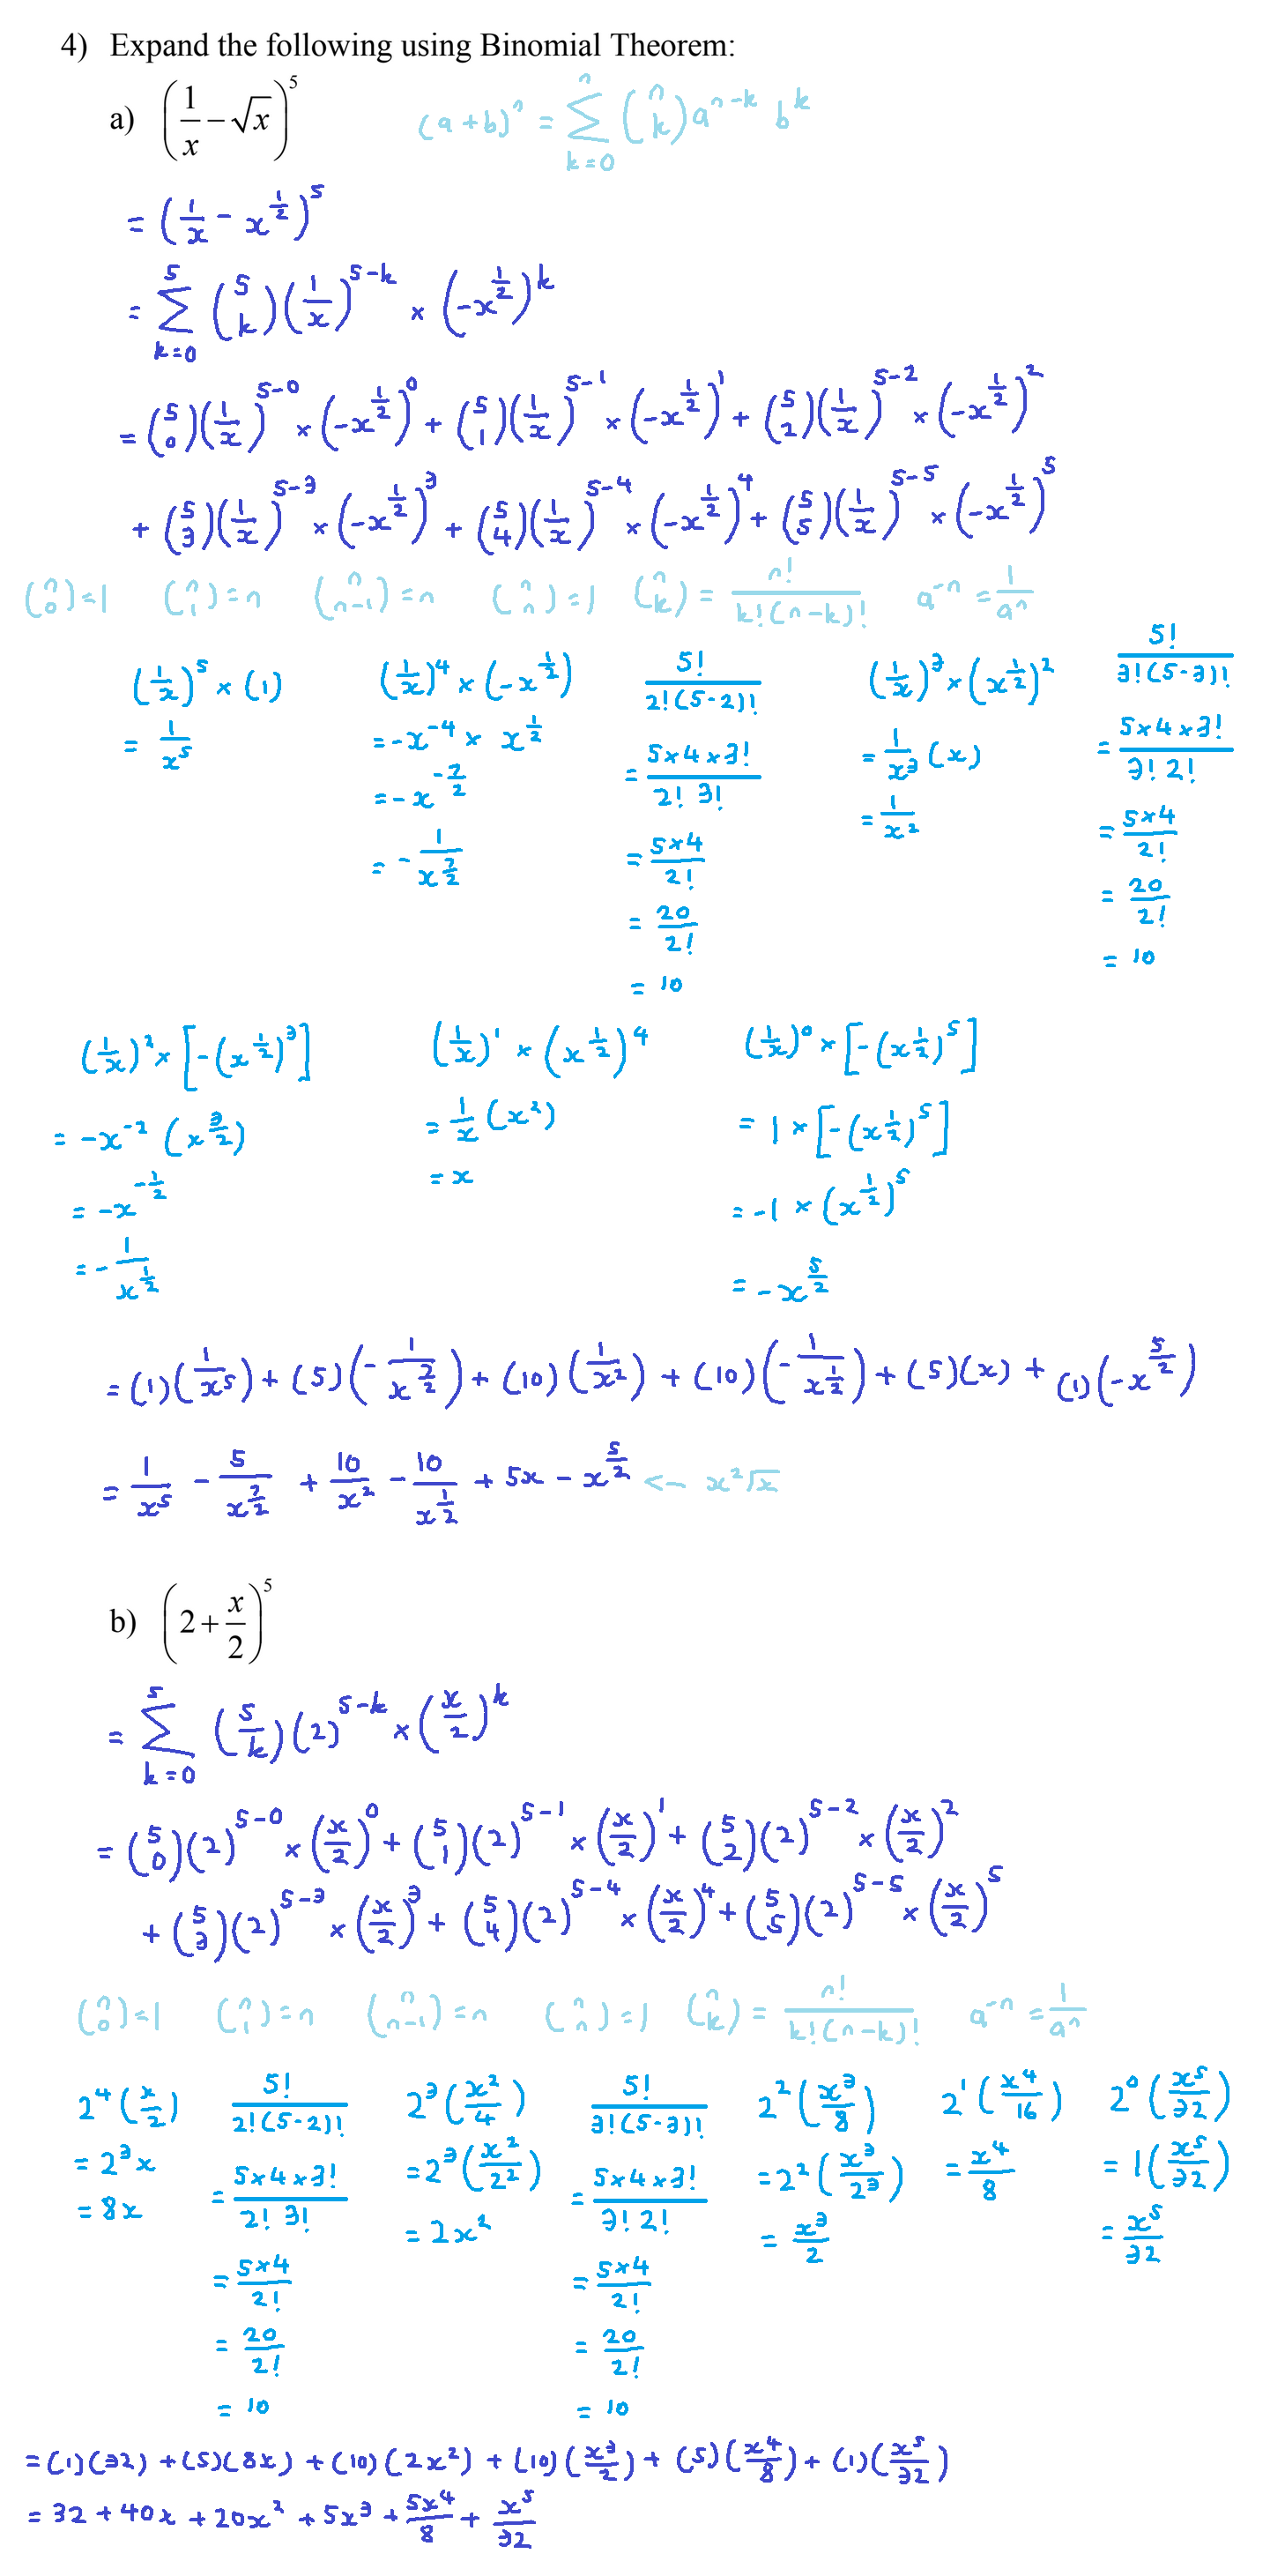 4) Expand the following using Binomial Theorem:
a) (1/x − √x)^5    (a+b)^n = Σ_{k=0}^{n} (n k) a^{n-k} b^k
= (1/x − x^{1/2})^5
= Σ_{k=0}^{5} (5 k)(1/x)^{5-k} × (-x^{1/2})^k
= (5 0)(1/x)^{5-0} × (-x^{1/2})^0 + (5 1)(1/x)^{5-1} × (-x^{1/2})^1 + (5 2)(1/x)^{5-2} × (-x^{1/2})^2
+ (5 3)(1/x)^{5-3} × (-x^{1/2})^3 + (5 4)(1/x)^{5-4} × (-x^{1/2})^4 + (5 5)(1/x)^{5-5} × (-x^{1/2})^5
(n 0)=1  (n 1)=n  (n n-1)=n  (n n)=1  (n k) = n!/k!(n-k)!  a^{-n} = 1/a^n
(1/x)^5 × (1)
= 1/x^5
(1/x)^4 × (-x^{1/2})
= -x^{-4} × x^{1/2}
= -x^{-7/2}
= -1/x^{7/2}
5!/2!(5-2)!
= 5×4×3!/2! 3!
= 5×4/2!
= 20/2!
= 10
(1/x)^3 × (x^{1/2})^2
= 1/x^3 (x)
= 1/x^2
5!/3!(5-3)!
= 5×4×3!/3! 2!
= 5×4/2!
= 20/2!
= 10
(1/x)^2 × [-(x^{1/2})^3]
= -x^{-2} (x^{3/2})
= -x^{-1/2}
= -1/x^{1/2}
(1/x)^1 × (x^{1/2})^4
= 1/x (x^2)
= x
(1/x)^0 × [-(x^{1/2})^5]
= 1 × [-(x^{1/2})^5]
= -1 × (x^{1/2})^5
= -x^{5/2}
= (1)(1/x^5) + (5)(-1/x^{7/2}) + (10)(1/x^2) + (10)(-1/x^{1/2}) + (5)(x) + (1)(-x^{5/2})
= 1/x^5 − 5/x^{7/2} + 10/x^2 − 10/x^{1/2} + 5x − x^{5/2} <– x^2√x
b) (2 + x/2)^5
= Σ_{k=0}^{5} (5/k)(2)^{5-k} × (x/2)^k
= (5 0)(2)^{5-0} × (x/2)^0 + (5 1)(2)^{5-1} × (x/2)^1 + (5 2)(2)^{5-2} × (x/2)^2
+ (5 3)(2)^{5-3} × (x/2)^3 + (5 4)(2)^{5-4} × (x/2)^4 + (5 5)(2)^{5-5} × (x/2)^5
(n 0)=1  (n 1)=n  (n n-1)=n  (n n)=1  (n k) = n!/k!(n-k)!  a^{-n} = 1/a^n
2^4 (x/2)
= 2^3 x
= 8x
5!/2!(5-2)!
= 5×4×3!/2! 3!
= 5×4/2!
= 20/2!
= 10
2^3 (x^2/4)
= 2^3 (x^2/2^2)
= 2x^2
5!/3!(5-3)!
= 5×4×3!/3! 2!
= 5×4/2!
= 20/2!
= 10
2^2 (x^3/8)
= 2^2 (x^3/2^3)
= x^3/2
2^1 (x^4/16)
= x^4/8
2^0 (x^5/32)
= 1(x^5/32)
= x^5/32
= (1)(32) + (5)(8x) + (10)(2x^2) + (10)(x^3/2) + (5)(x^4/8) + (1)(x^5/32)
= 32 + 40x + 20x^2 + 5x^3 + 5x^4/8 + x^5/32